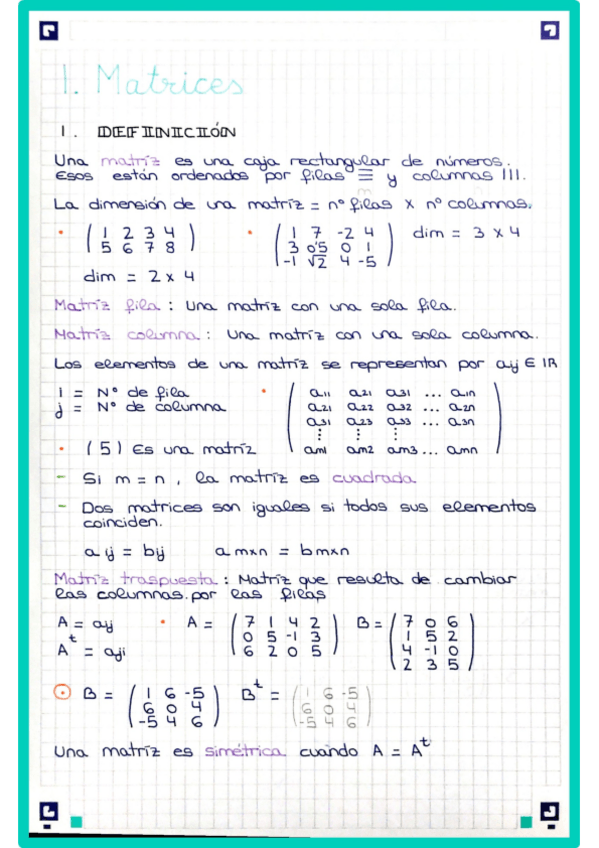 1. Matrices
1. DEFINICIÓN
Una matríz es una caja rectangular de números.
Esos están ordenados por filas ≡ y columnas III.
m
La dimensión de una matríz = nº filas x nº columnas.
• ( 1 2 3 4 • ( 1 7 -2 4 ) dim = 3 x 4
5 6 7 8 ) 3 0'5 0 1
-1 √2 4 -5
dim = 2 x 4
Matríz fila : Una matríz con una sola fila.
Matríz columna : Una matríz con una sola columna.
Los elementos de una matríz se representan por aij ∈ IR
i = Nº de fila • ( a11 a21 a31 ... a1n
j = Nº de columna a21 a22 a32 ... a2n
a31 a23 a33 ... a3n
⋮ ⋮ ⋮
• (5) Es una matríz am1 am2 am3 ... amn )
- Si m = n , la matríz es cuadrada
- Dos matrices son iguales si todos sus elementos
coinciden.
aij = bij amxn = bmxn
Matríz traspuesta : Matríz que resulta de cambiar
las columnas por las filas
A = aij • A = ( 7 1 4 2 B = ( 7 0 6
A^t = aji 0 5 -1 3 1 5 2
6 2 0 5 ) 4 -1 0
2 3 5 )
• B = ( 1 6 -5 B^t = ( 1 6 -5
6 0 4 6 0 4
-5 4 6 ) -5 4 6 )
Una matríz es simétrica cuando A = A^t